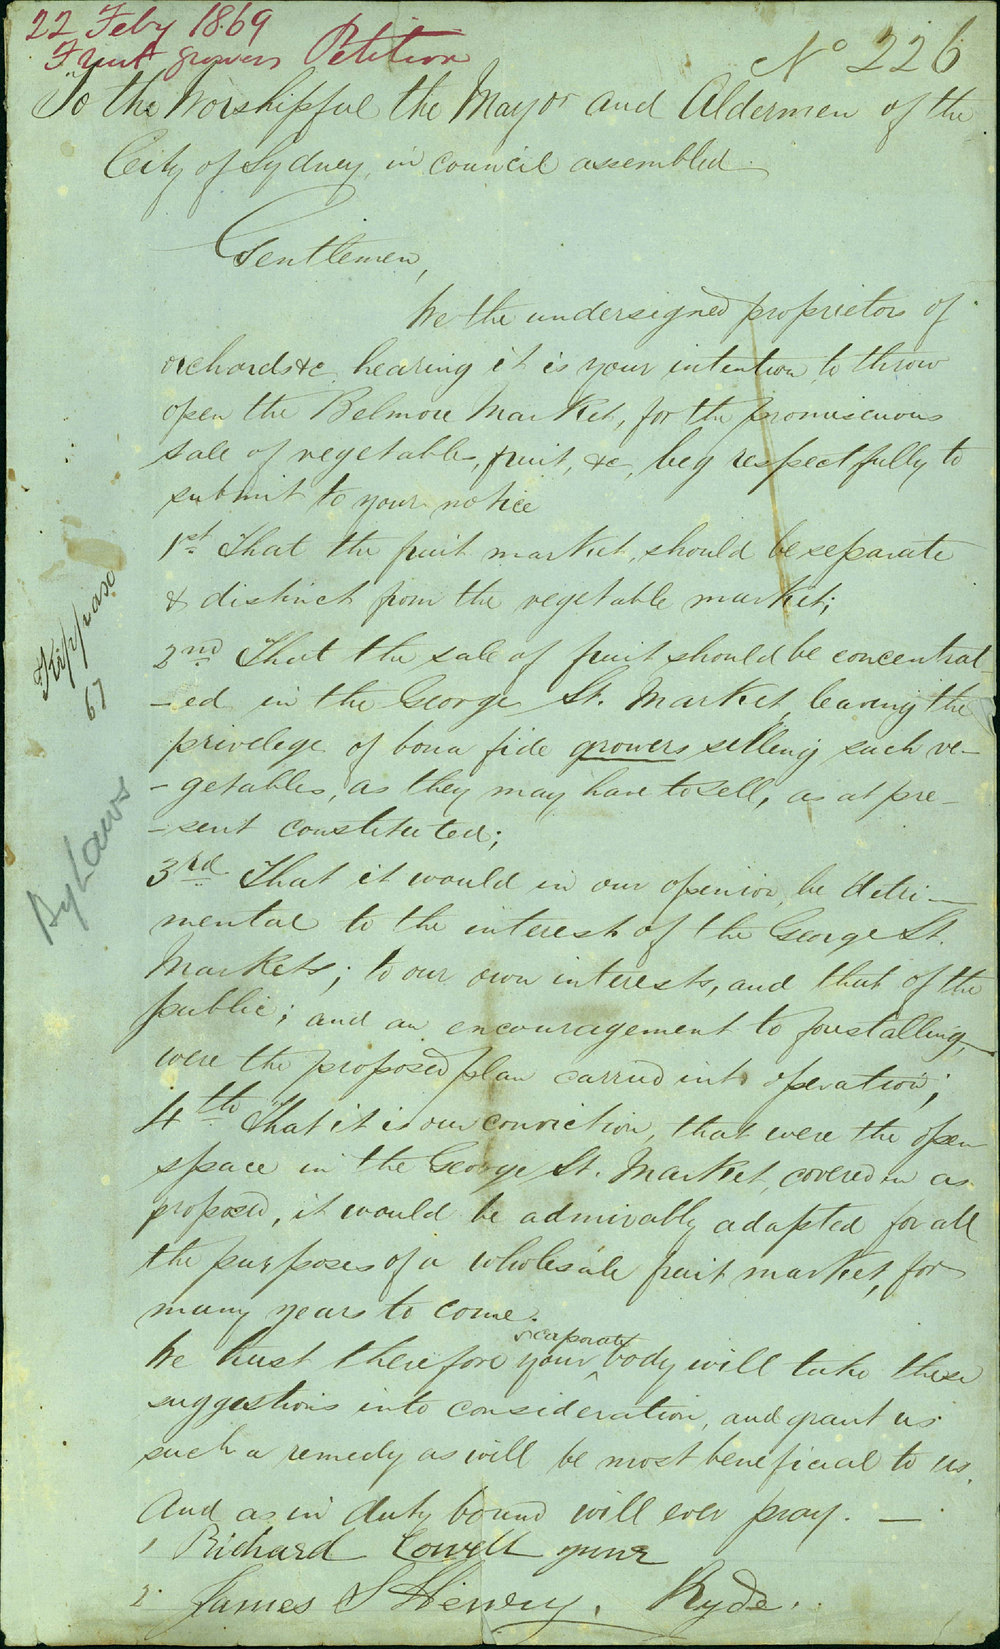 22 Feby 1869
Fruit growers Petition
No 226
To the Worshipful the Mayor and Aldermen of the
City of Sydney, in council assembled.
Gentlemen,
We the undersigned proprietors of
orchards &c hearing it is your intention to throw
open the Belmore Market, for the promiscuous
sale of vegetables, fruit, &c, beg respectfully to
submit to your notice
1st. That the fruit market, should be separate
& distinct from the vegetable market;
2nd That the sale of fruit should be concentrat-
-ed in the George St. Market, leaving the
privelege of bona fide growers selling such ve-
-getables, as they may have to sell, as at pre-
-sent constituted;
3rd That it would in our openion, be detri-
mental to the interest of the George St.
Markets; to our own interests, and that of the
public; and an encouragement to forstalling,
were the proposed plan carried into operation;
4th That it is our conviction, that were the open
space in the George St. Market, covered in as
proposed, it would be admirably adapted for all
the purposes of a wholesale fruit market, for
many years to come.
corporate
We trust therefore your body will take these
suggestions into consideration, and grant us
such a remedy as will be most beneficial to us.
And as in duty bound will ever pray. —
1 Richard Cowell
2. James S Henry, Ryde.
67
By Laws